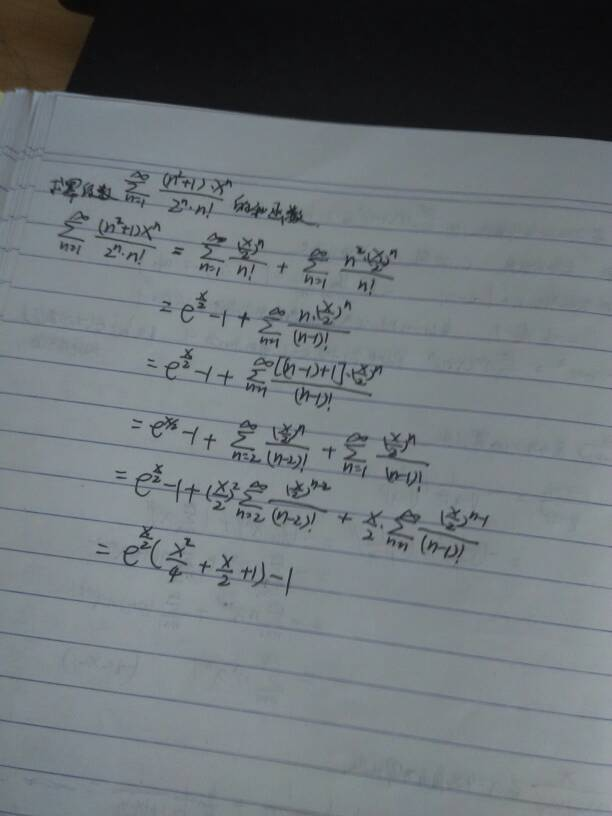 求幂级数 ∑_{n=1}^{∞} \frac{(n²+1)·xⁿ}{2ⁿ·n!} 的和函数.
∑_{n=1}^{∞} \frac{(n²+1)xⁿ}{2ⁿ·n!} = ∑_{n=1}^{∞} \frac{(\frac{x}{2})^n}{n!} + ∑_{n=1}^{∞} \frac{n²·(\frac{x}{2})^n}{n!}
= e^{\frac{x}{2}} -1 + ∑_{n=1}^{∞} \frac{n·(\frac{x}{2})^n}{(n-1)!}
= e^{\frac{x}{2}} -1 + ∑_{n=1}^{∞} \frac{[(n-1)+1]·(\frac{x}{2})^n}{(n-1)!}
= e^{x/2} -1 + ∑_{n=2}^{∞} \frac{(\frac{x}{2})^n}{(n-2)!} + ∑_{n=1}^{∞} \frac{(\frac{x}{2})^n}{(n-1)!}
= e^{\frac{x}{2}} -1 + (\frac{x}{2})² ∑_{n=2}^{∞} \frac{(\frac{x}{2})^{n-2}}{(n-2)!} + \frac{x}{2}·∑_{n=1}^{∞} \frac{(\frac{x}{2})^{n-1}}{(n-1)!}
= e^{\frac{x}{2}} (\frac{x²}{4} + \frac{x}{2} +1) -1